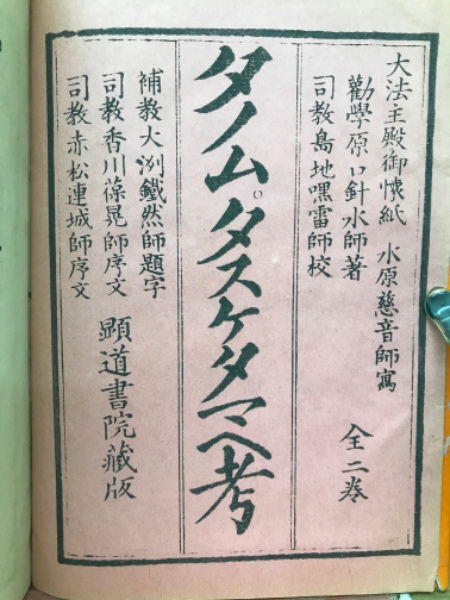 大法主殿御懷紙 水原慈音師寫
勸學原口針水師著
司教島地嘿雷師校
全二卷
タノム。タスケタマヘ考
補教大洲鐵然師題字
司教香川葆晃師序文
司教赤松連城師序文
顕道書院藏版